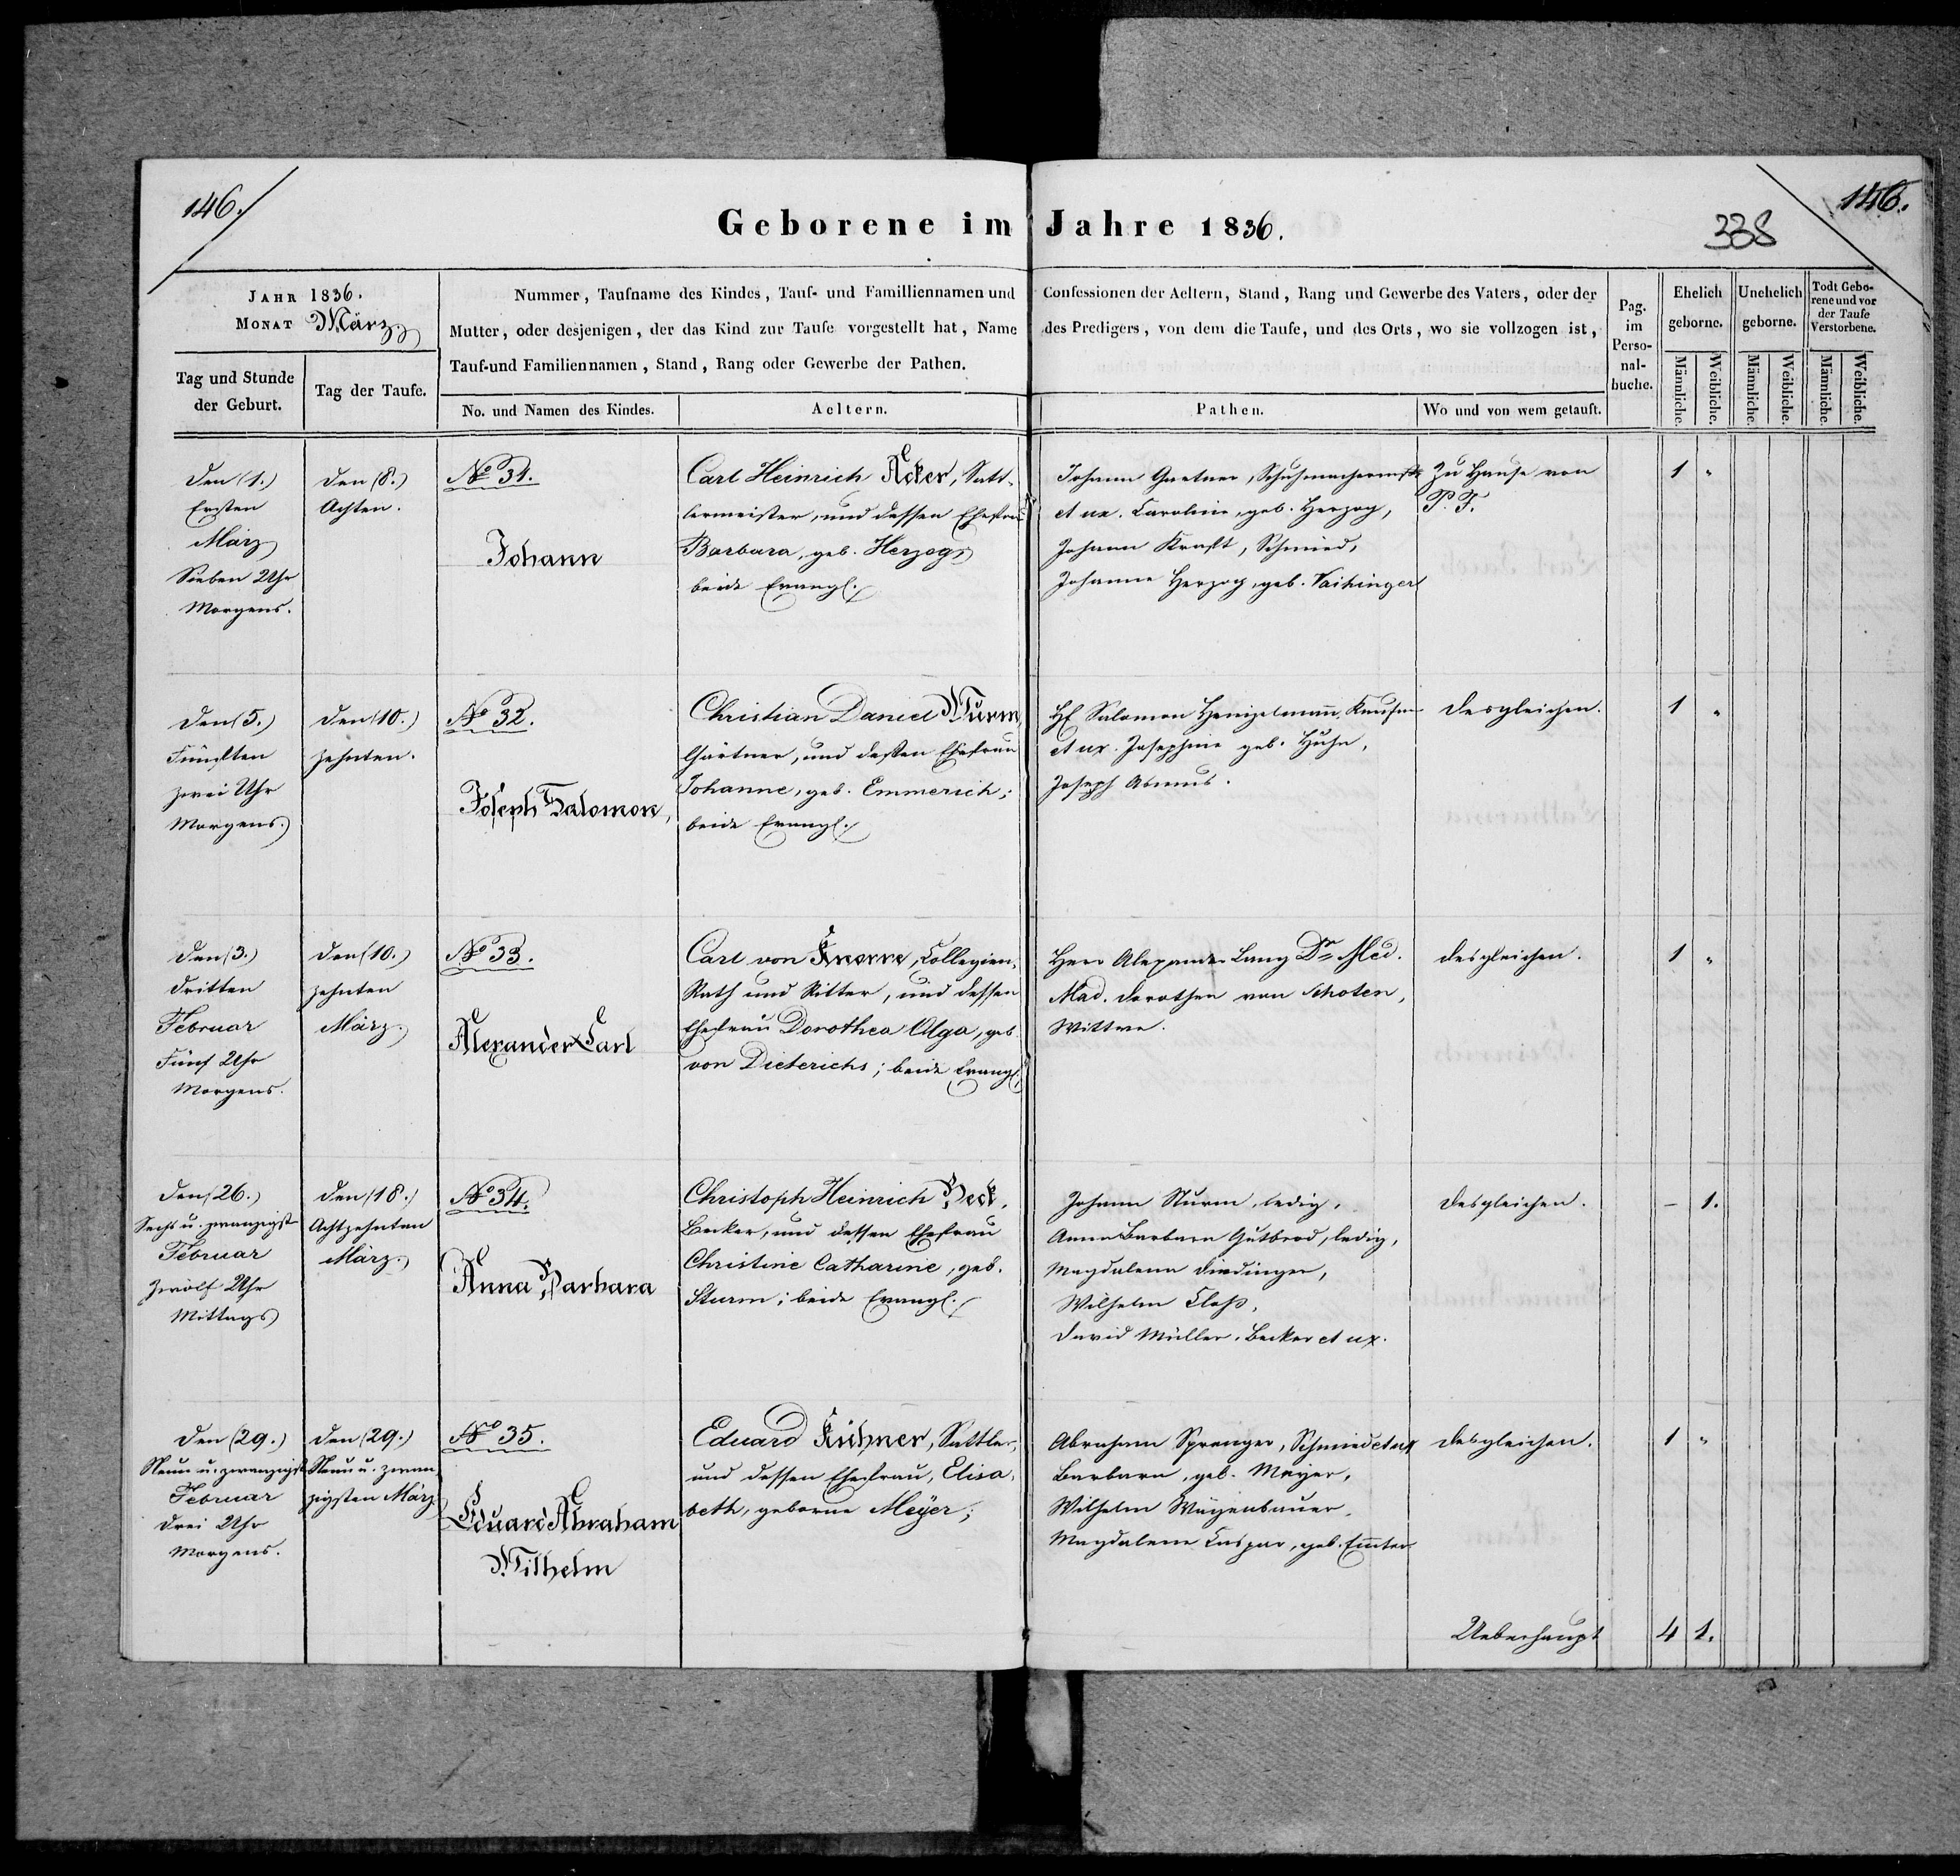 146.
146.
338
Geborene im Jahre 1836.
Jahr 1836.
Monat März
Tag und Stunde der Geburt.
Tag der Taufe.
Nummer, Taufname des Kindes, Tauf- und Familliennamen und Confessionen der Aeltern, Stand, Rang und Gewerbe des Vaters, oder der
Mutter, oder desjenigen, der das Kind zur Taufe vorgestellt hat, Name des Predigers, von dem die Taufe, und des Orts, wo sie vollzogen ist,
Tauf-und Familiennamen, Stand, Rang oder Gewerbe der Pathen.
No. und Namen des Kindes.
Aeltern.
Pathen.
Wo und von wem getauft.
Pag. im Perso-nal-buche.
Ehelich geborne.
Unehelich geborne.
Todt Gebo-rene und vor der Taufe Verstorbene.
Männliche.
Weibliche.
Männliche.
Weibliche.
Männliche.
Weibliche.
Den (1.)
Ersten
März
Sieben Uhr
Morgens.
Den (8.)
Achten.
No 31.
Johann
Carl Heinrich Acker, Satt-
lermeister, und dessen Ehefrau
Barbara, geb. Herzog,
beide Evangl.
Johann Gartner, Schuhmachermstr
et ux. Caroline, geb. Herzog,
Johann Kraft, Schmied,
Johanne Herzog, geb. Vaihinger
Zu Hause von
P. F.
1 "
Den (5.)
Fünften
zwei Uhr
Morgens.
Den (10.)
zehnten.
No 32.
Joseph Salomon,
Christian Daniel Wurm,
Gärtner, und dessen Ehefrau
Johanne, geb. Emmerich;
beide Evangl.
H. Salomon Heinzelmann, Kaufm
et ux. Josephine geb. Huhn,
Joseph Asmus.
desgleichen.
1 "
Den (3.)
dritten
Februar
Fünf Uhr
Morgens.
Den (10.)
zehnten
März.
No 33.
Alexander Carl
Carl von Knorre, Collegien-
Rath und Ritter, und dessen
Ehefrau Dorothea Olga, geb.
von Dieterichs; beide Evangl.
Herr Alexander Lang Dr Med.
Mad. Dorothea von Schoten,
Wittwe.
desgleichen.
1 "
Den (26.)
Sechs u. zwanzigst
Februar
zwölf Uhr
Mittags
Den (18.)
Achtzehnten
März.
No 34.
Anna Barbara
Christoph Heinrich Beck,
Becker, und dessen Ehefrau
Christine Catharine, geb.
Sturm; beide Evangl.
Johann Sturm, ledig,
Anna Barbara Gutbrod, ledig,
Magdalena Diedinger,
Wilhelm Closs,
David Müller, Becker et ux.
desgleichen.
– 1.
Den (29.)
Neun u. zwanzigst
Februar
drei Uhr
Morgens.
Den (29.)
Neun u. zwan
zigsten März
No 35.
Eduard Abraham
Wilhelm
Eduard Kühner, Sattler,
und dessen Ehefrau, Elisa-
beth, geborne Meyer;
Abraham Sprenger, Schmied et ux
Barbara, geb. Meyer,
Wilhelm Wägenbauer,
Magdalena Caspar, geb.
desgleichen.
1 "
Ueberhaupt
4 1.